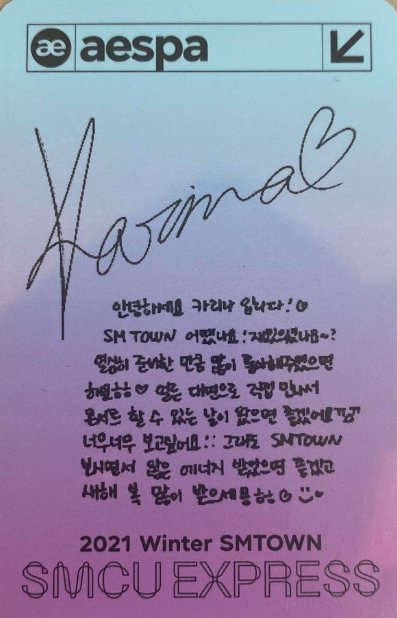 æ aespa
Karina♡
안녕하세요 카리나 입니다!♡
SMTOWN 어땠나요! 재밌었나요~?
열심히 준비한 만큼 많이 좋아해주셨으면
해요ㅎㅎ♡ 얼른 대면으로 직접 만나서
콘서트 할 수 있는 날이 왔으면 좋겠어요
너무너무 보고싶어요!! 그래도 SMTOWN
보시면서 많은 에너지 받았으면 좋겠고
새해 복 많이 받으세용ㅎㅎ♡
2021 Winter SMTOWN
SMCU EXPRESS